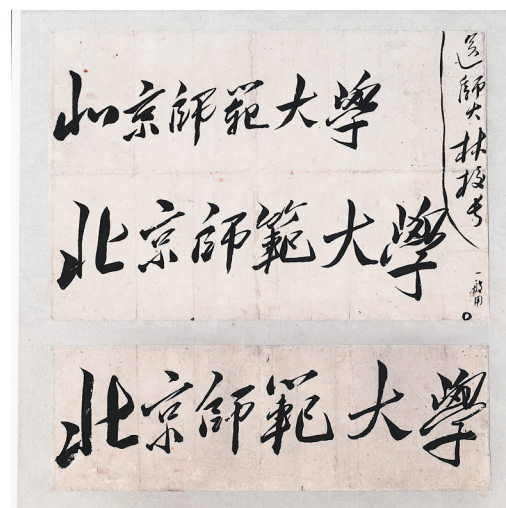 北京師範大學
北京師範大學
送師大林校长
一般用
北京師範大學